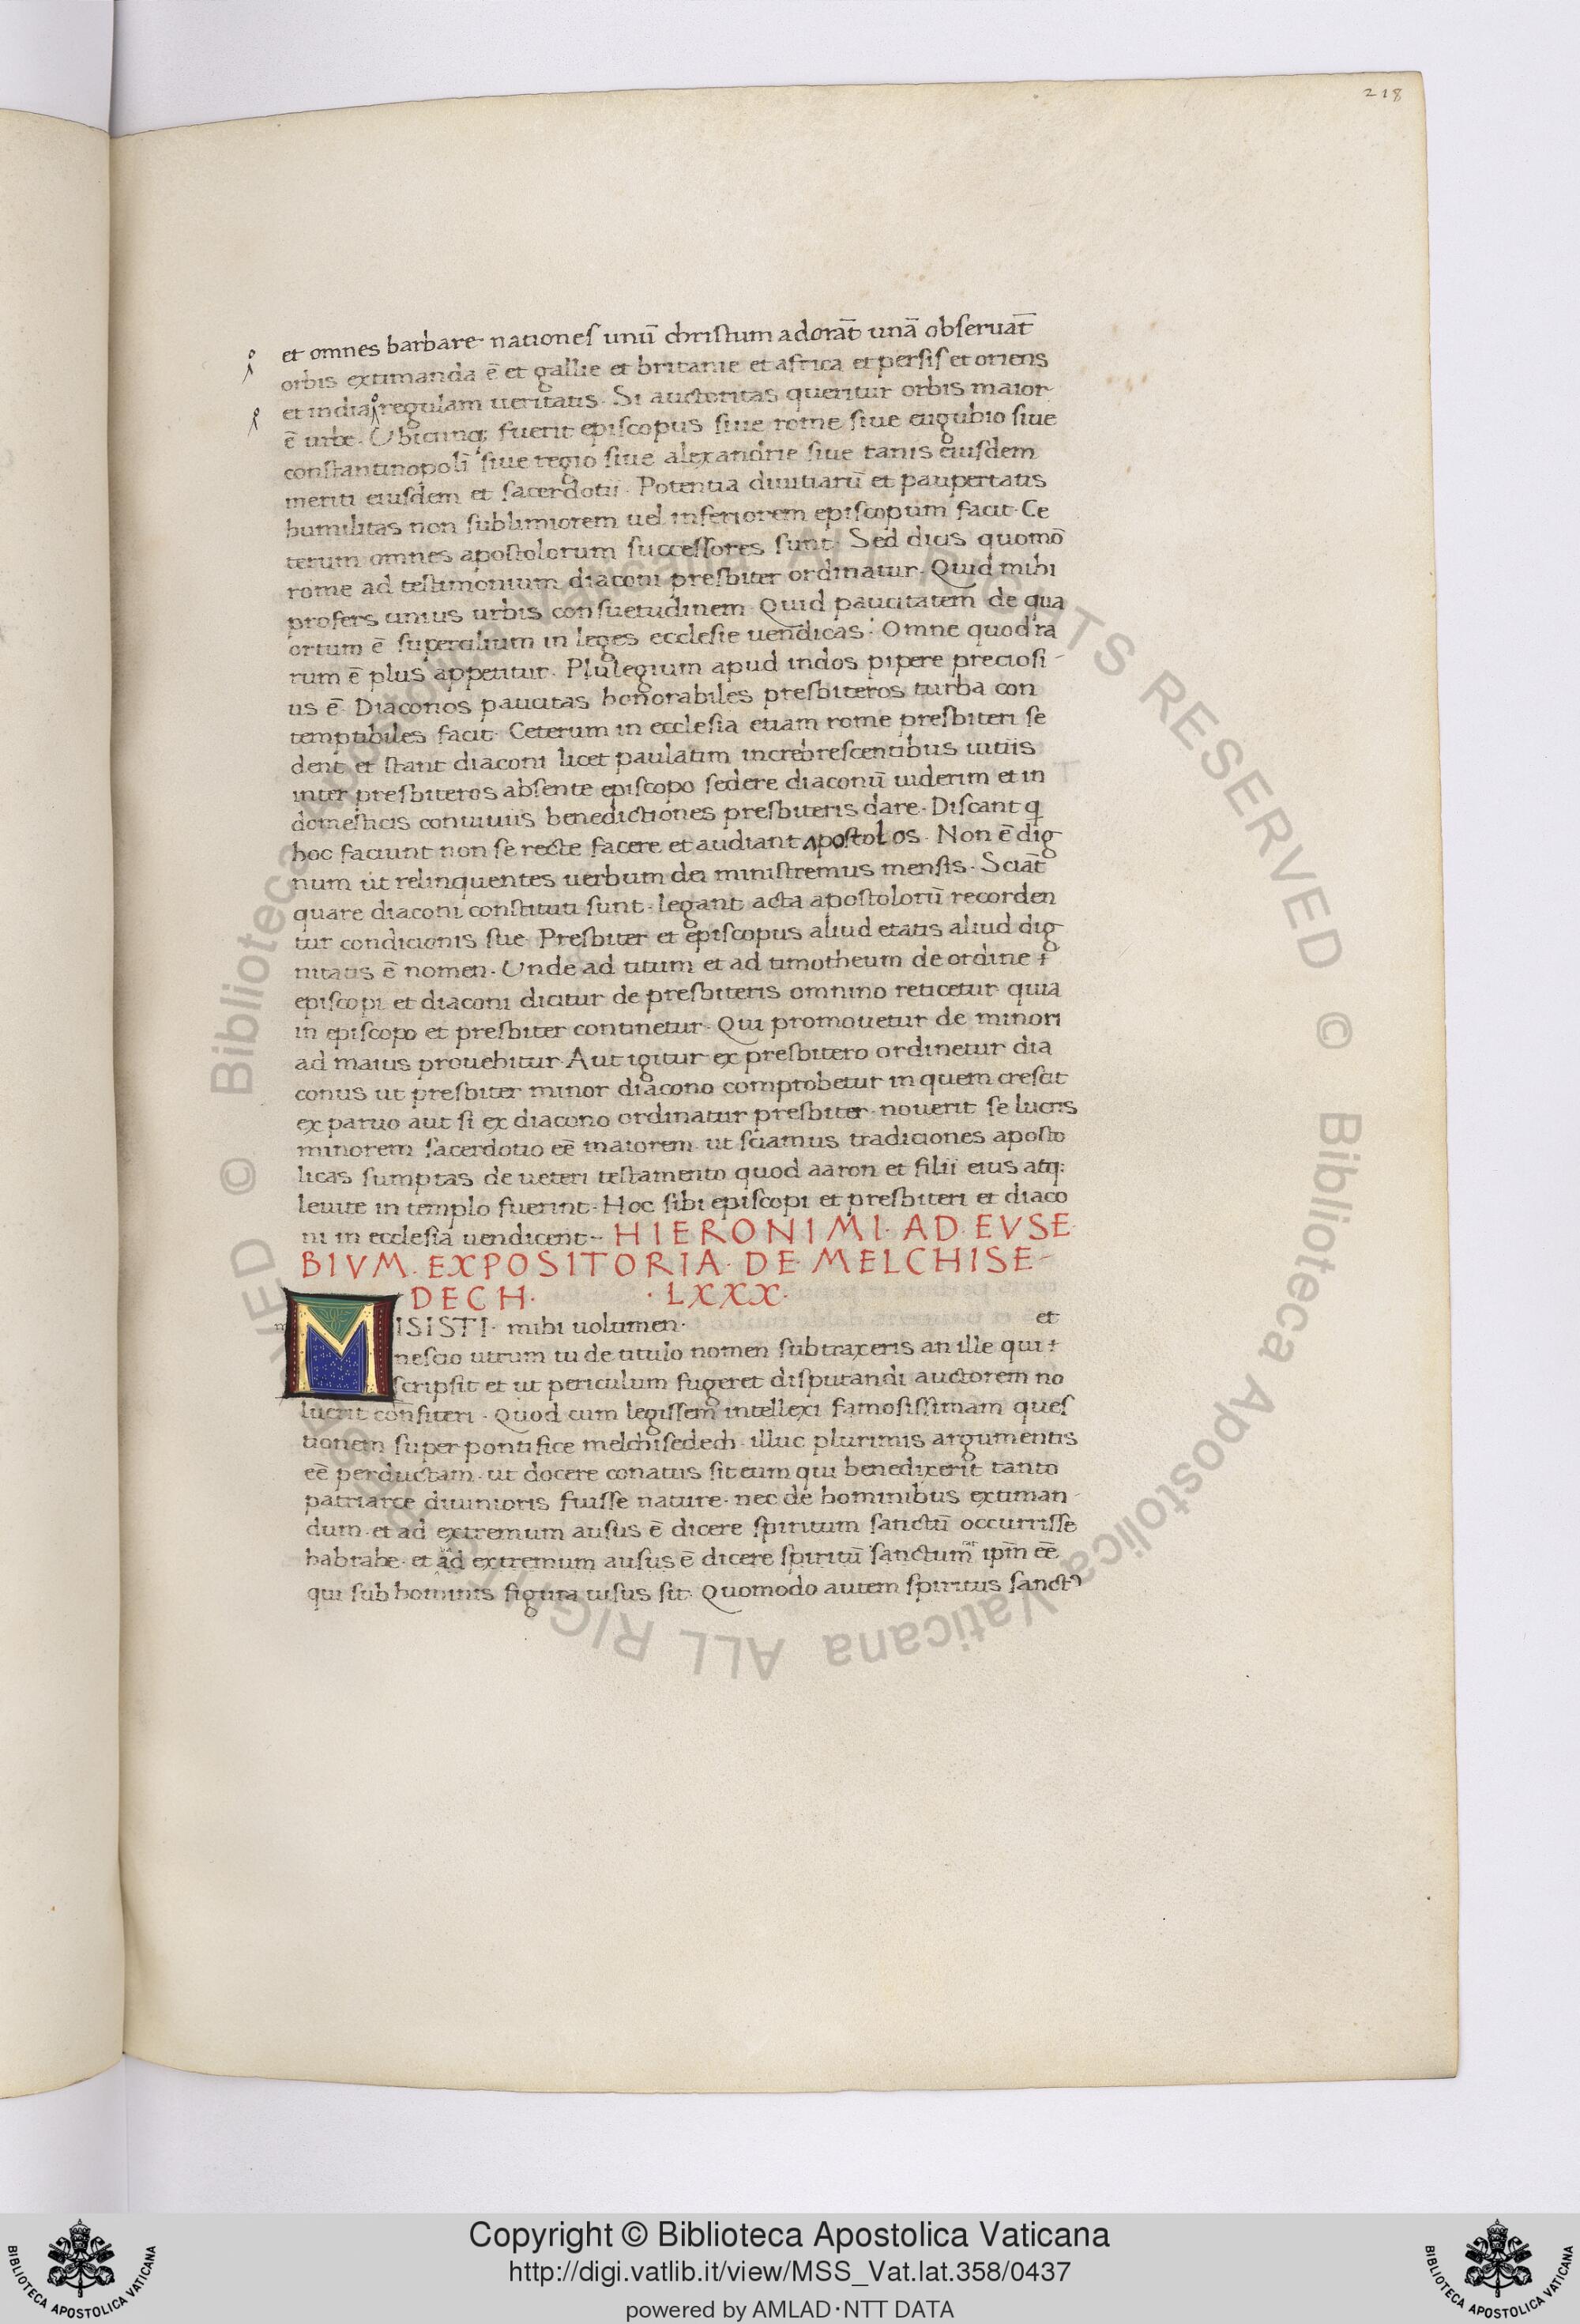 218
et omnes barbare nationes unū christum adorāt unā obseruāt
orbis extimanda ē et gallie et britanie et africa et persis et oriens
et india regulam ueritatis. Si auctoritas queritur orbis maior
ē urbe. Ubicunq; fuerit episcopus siue rome siue eugubio siue
constantinopolī siue regio siue alexandrie siue tanis eiusdem
meriti eiusdem et sacerdotii. Potentia diuitiarū et paupertatis
humilitas non sublimiorem uel inferiorem episcopum facit. Ce
terum omnes apostolorum successores sunt. Sed dicis quomō
rome ad testimonium diaconi presbiter ordinatur. Quid mihi
profers unius urbis consuetudinem. Quid paucitatem de qua
ortum ē supercilium in leges ecclesie uendicas. Omne quod ra
rum ē plus appetitur. Pulegium apud indos pipere preciosi-
us ē. Diaconos paucitas honorabiles presbiteros turba con
temptibiles facit. Ceterum in ecclesia etiam rome presbiteri se
dent et stant diaconi licet paulatim increbrescentibus uitiis
inter presbiteros absente episcopo sedere diaconū uiderim et in
domesticis conuiuiis benedictiones presbiteris dare. Discant q
hoc faciunt non se recte facere et audiant apostolos. Non ē dig
num ut relinquentes uerbum dei ministremus mensis. Sciāt
quare diaconi constituti sunt. legant acta apostolorū recorden
tur condicionis sue. Presbiter et episcopus aliud etatis aliud dig
nitatis ē nomen. Unde ad titum et ad timotheum de ordine
episcopi et diaconi dicitur de presbiteris omnino reticetur quia
in episcopo et presbiter continetur. Qui promouetur de minori
ad maius prouehitur. Aut igitur ex presbitero ordinetur dia
conus ut presbiter minor diacono comprobetur in quem crescit
ex paruo aut si ex diacono ordinatur presbiter. nouerit se lucris
minorem sacerdotio eē maiorem. ut sciamus tradiciones aposto
licas sumptas de ueteri testamento quod aaron et filii eius atq;
leuite in templo fuerint. Hoc sibi episcopi et presbiteri et diaco
ni in ecclesia uendicent. HIERONIMI. AD. EVSE
BIVM. EXPOSITORIA. DE. MELCHISE-
DECH. .LXXX.
MISISTI. mihi uolumen. et
nescio utrum tu de titulo nomen subtraxeris an ille qui
scripsit et ut periculum fugeret disputandi auctorem no
luerit confiteri. Quod cum legissem intellexi famosissimam ques
tionem super pontifice melchisedech. illuc plurimis argumentis
eē perductam. ut docere conatus sit eum qui benedixerit tanto
patriarce diuinioris fuisse nature. nec de hominibus extiman-
dum. et ad extremum ausus ē dicere spiritum sanctū occurrisse
habrahe. et ad extremum ausus ē dicere spiritū sanctum ipm̄ eē
qui sub hominis figura uisus sit. Quomodo autem spiritus sanctꝰ
© Biblioteca Apostolica Vaticana ALL RIGHTS RESERVED
© Biblioteca Apostolica Vaticana ALL RIGHTS RESERVED
Copyright © Biblioteca Apostolica Vaticana
http://digi.vatlib.it/view/MSS_Vat.lat.358/0437
powered by AMLAD·NTT DATA
BIBLIOTECA APOSTOLICA VATICANA
BIBLIOTECA APOSTOLICA VATICANA